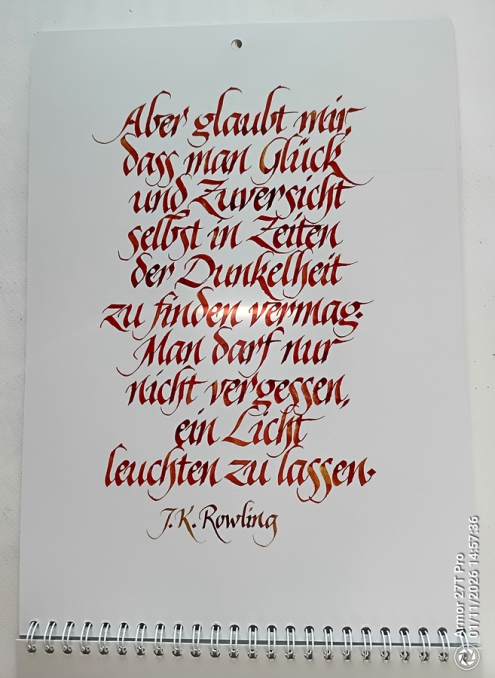 Aber glaubt mir,
dass man Glück
und Zuversicht
selbst in Zeiten
der Dunkelheit
zu finden vermag.
Man darf nur
nicht vergessen,
ein Licht
leuchten zu lassen.
J.K. Rowling
Armor 27T Pro
01/11/2026 14:57:36